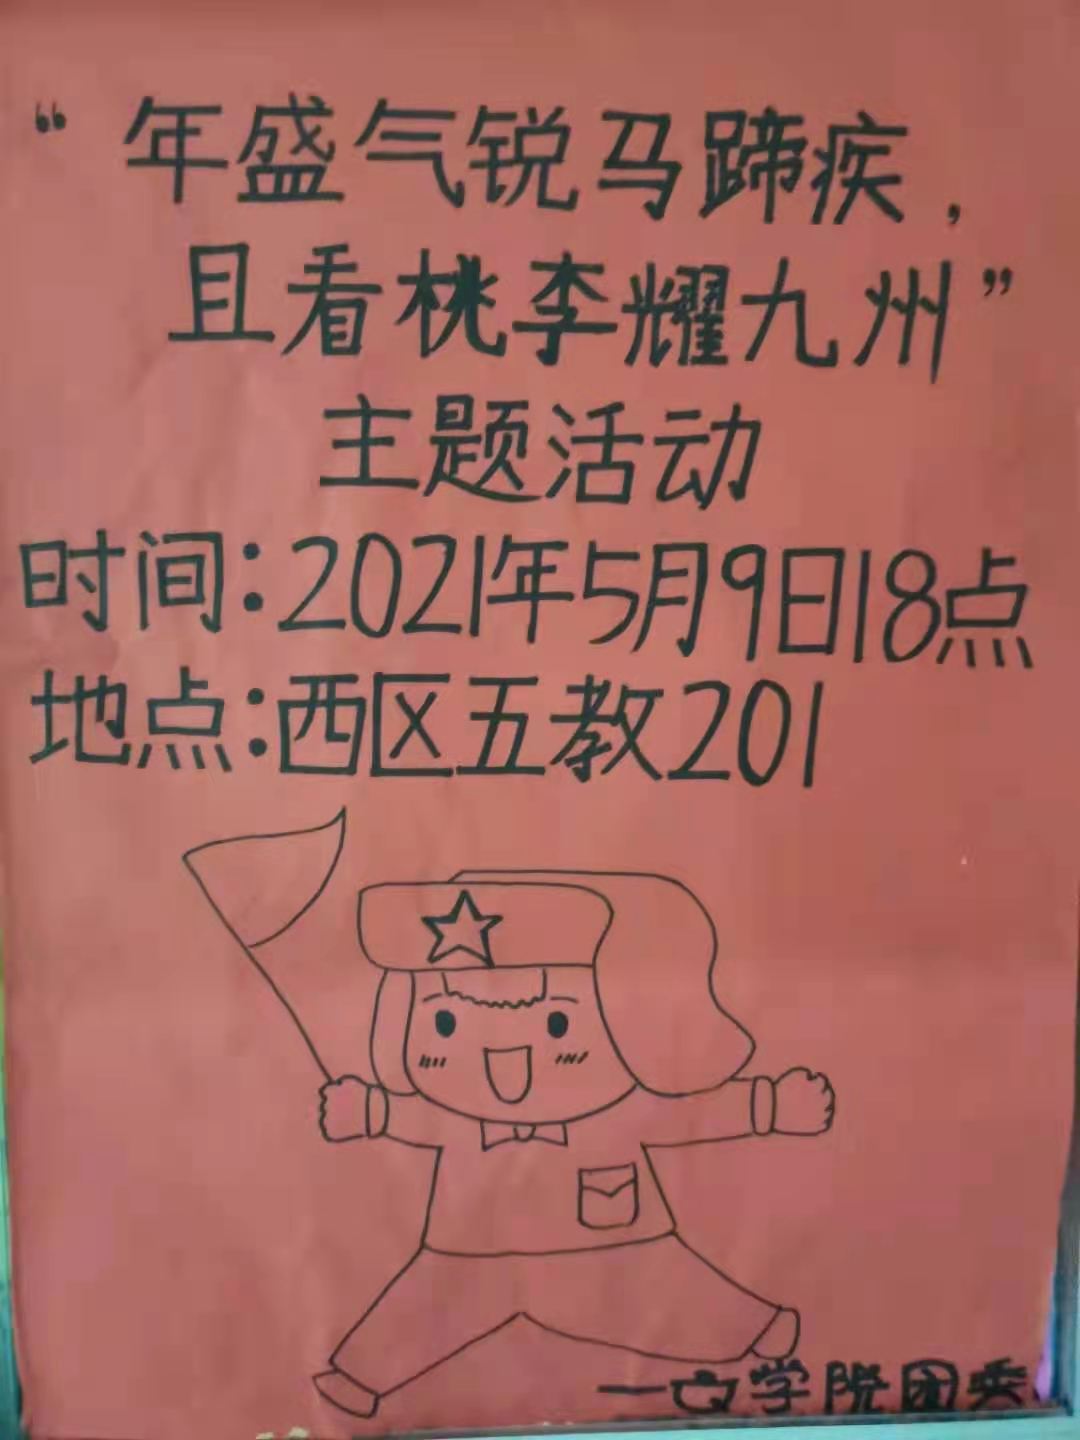 “年盛气锐马蹄疾,
且看桃李耀九州”
主题活动
时间:2021年5月9日18点
地点:西区五教201
—文学院团委